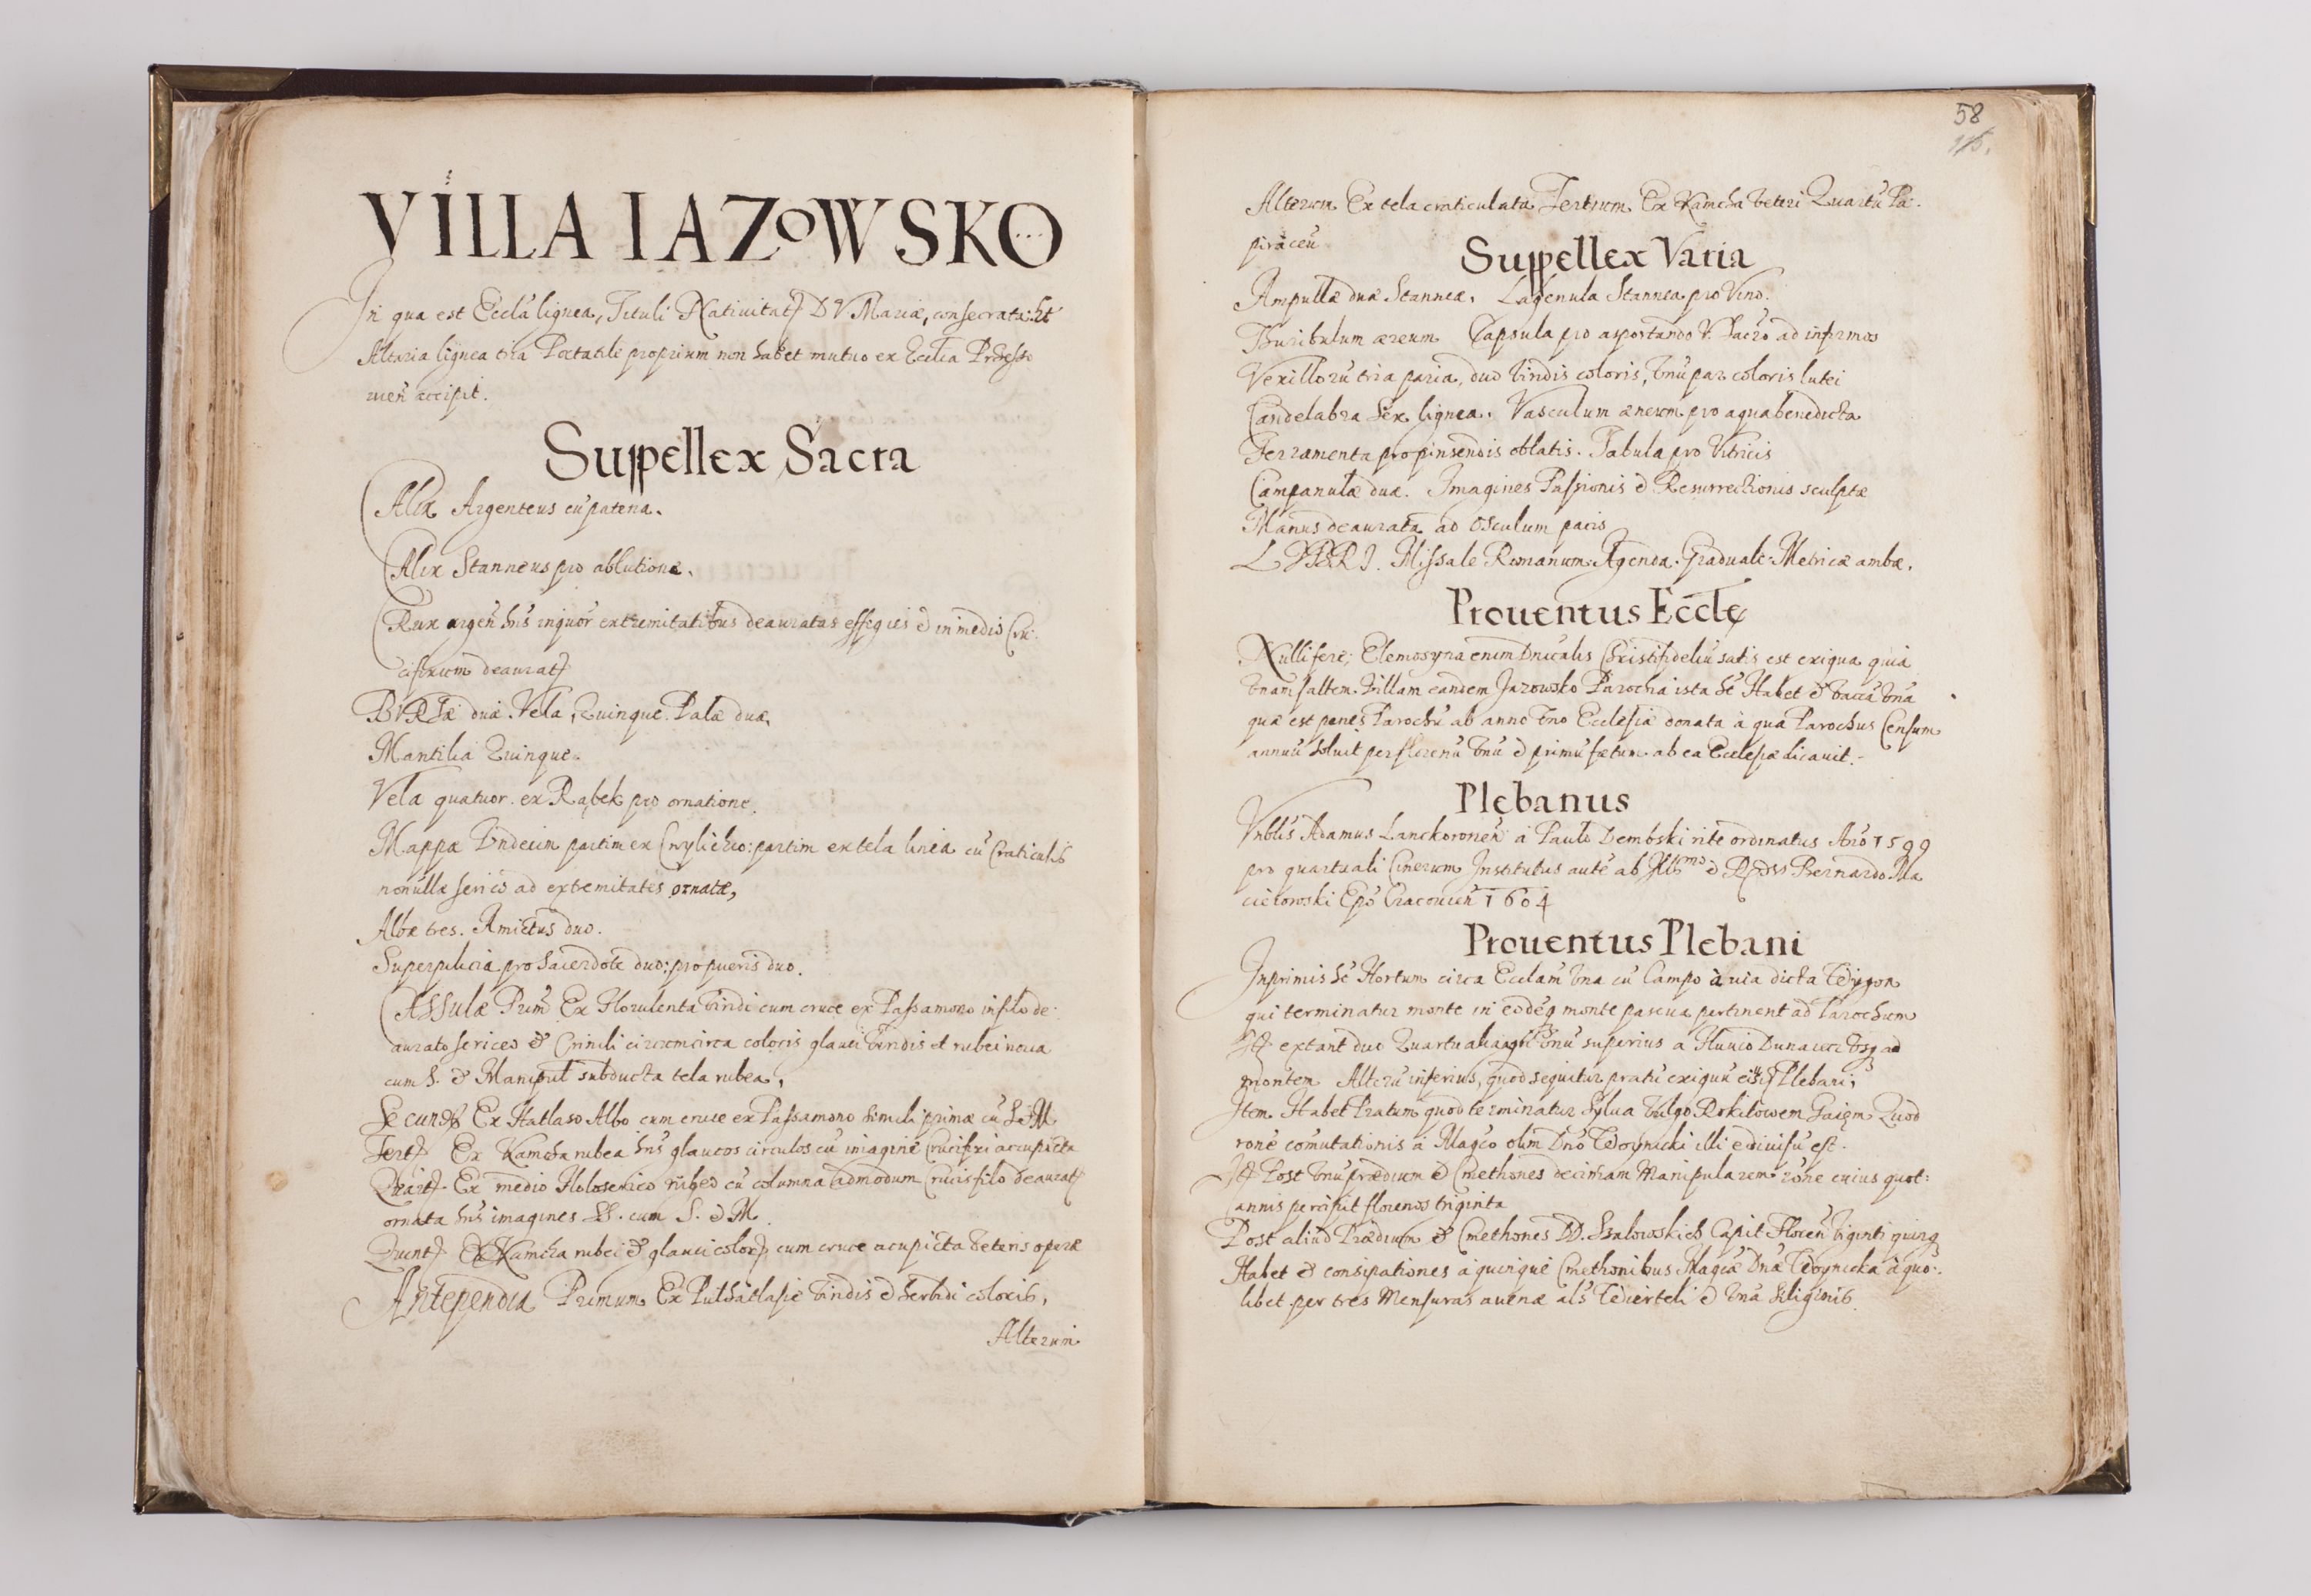 VILLA IAZOWSKO
In qua est Eccla lignea, Tituli Natiuitat DV Mariæ, consecrata: ht
Altaria lignea tria Portatile proprium non habet mutuo ex Ecclia
accipit.
Suppellex Sacra
CAlix Argenteus cū patena.
CAlix Stanneus pro ablutione.
CRux argen hns inquor extremitatibus deauratas effigies & in medio Cru:
cifixum deaurat
BVRSæ duæ. Vela Quinque. Palæ duæ,
Mantilia Quinque.
Vela quatuor. ex Rąbek pro ornatione.
Mappæ Vndecim partim ex Cwylichio: partim ex tela linea cū Craticulis
nonullæ serico ad extremitates ornatæ,
Albæ tres. Amictus duo.
Superpilicia pro Sacerdote duo: pro pueris duo.
CASSulæ Prim Ex Florulenta viridi cum cruce ex Passamono in filo de:
aurato sericeo & Crinili circumcirca coloris glauci viridis et rubei noua
cum S. & Manipul subducta tela rubea,
Secund Ex Hatlaso Albo cum cruce ex Passamono simili primæ cū S & M
Tert Ex Kamcha rubea hns glaucos circulos cū imagine Crucifixi accupicta
Quart Ex medio Holoserico rubeo cū columna admodum Crucis filo deaurat
ornata hns imagines SS. cum S. & M.
Quint Ex Kamcha rubei & glauci color cum cruce acupicta veteris operæ
Antependia Primum Ex Pulhatlasie viridis & herbidi coloris,
Alterum
58
115.
Alterum Ex tela craticulata Tertium Ex Kamcha veteri Quartū Pa:
piraceū
Suppellex Varia
Ampullæ duæ Stanneæ. Lagenula Stannea pro Vino.
Thuribulum æreum Capsula pro asportando V. Sacro ad infirmos
Vexillorū tria paria, duo viridis coloris, vnū par coloris lutei
Candelabra sex lignea. Vasculum æneum pro aqua benedicta
Ferramenta pro pinsendis oblatis. Tabula pro Vitricis
Campanulæ duæ. Imagines Passionis & Resurrectionis sculptæ
Manus deaurata ad osculum pacis
LIBRI. Missale Romanum. Agenda. Graduale. Metricæ ambæ.
Prouentus Eccle
Nulli fere; Elemosyna enim Dnicalis Christifideliū satis est exigua quia
vnam saltem Villam eandem Jazowsko Parochia ista ht Habet & vaccā vnā
quæ est penes Parochū ab anno vno Ecclesiæ donata à qua Parochus Censum
annuū soluit per florenū vnū & primū fætum ab ea Ecclesiæ dicauit.
Plebanus
Vnblis Adamus Lanckoronen à Paulo Dembski rite ordinatus Ano 1599
pro quartuali Cinerum Institutus aute ab Illmo & Rdssi Bernardo Ma
cieiowski Epo Cracouien 1604
Prouentus Plebani
Inprimis ht Hortum circa Ecclam vna cū Campo à uia dicta Wygon
qui terminatur monte in eodeq monte pascua pertinent ad Parochum
It extant duo Quartualia vnū superius a Fluuio Dunaiec vsq ad
montem Alterū inferius, quod sequitur pratū exiguū eiusq Plebani,
Item Habet Pratum quod terminatur Sylua vulgo Rokitowem Gaiem Quod
rone comutationis à Magco olim Dno Woynicki illi e diuisū est.
It Post vnū prædium & Cmethones decimam Manipularem rone cuius quot:
annis percipit florenos triginta
Post aliud Prædium & Cmethones DD. Szalowskich Capit Floren Viginti quinq
Habet & consipationes a quinque Cmethonibus Magcæ Dnæ Woynicka à quo:
libet per tres Mensuras auenæ als Wierteli & vnā Siliginis.